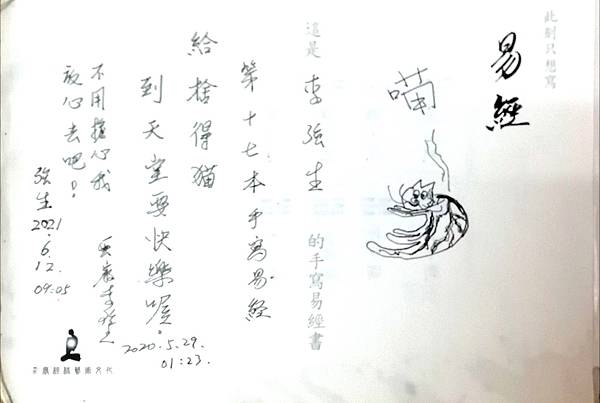 此刻只想寫
易經
喵
這是 李強生 的手寫易經書
第十七本手寫易經
給捨得貓
到天堂要快樂喔。
2020.5.29.
01:23.
不用擔心我
放心去吧!
強生
2021
.6.
12.
09:05